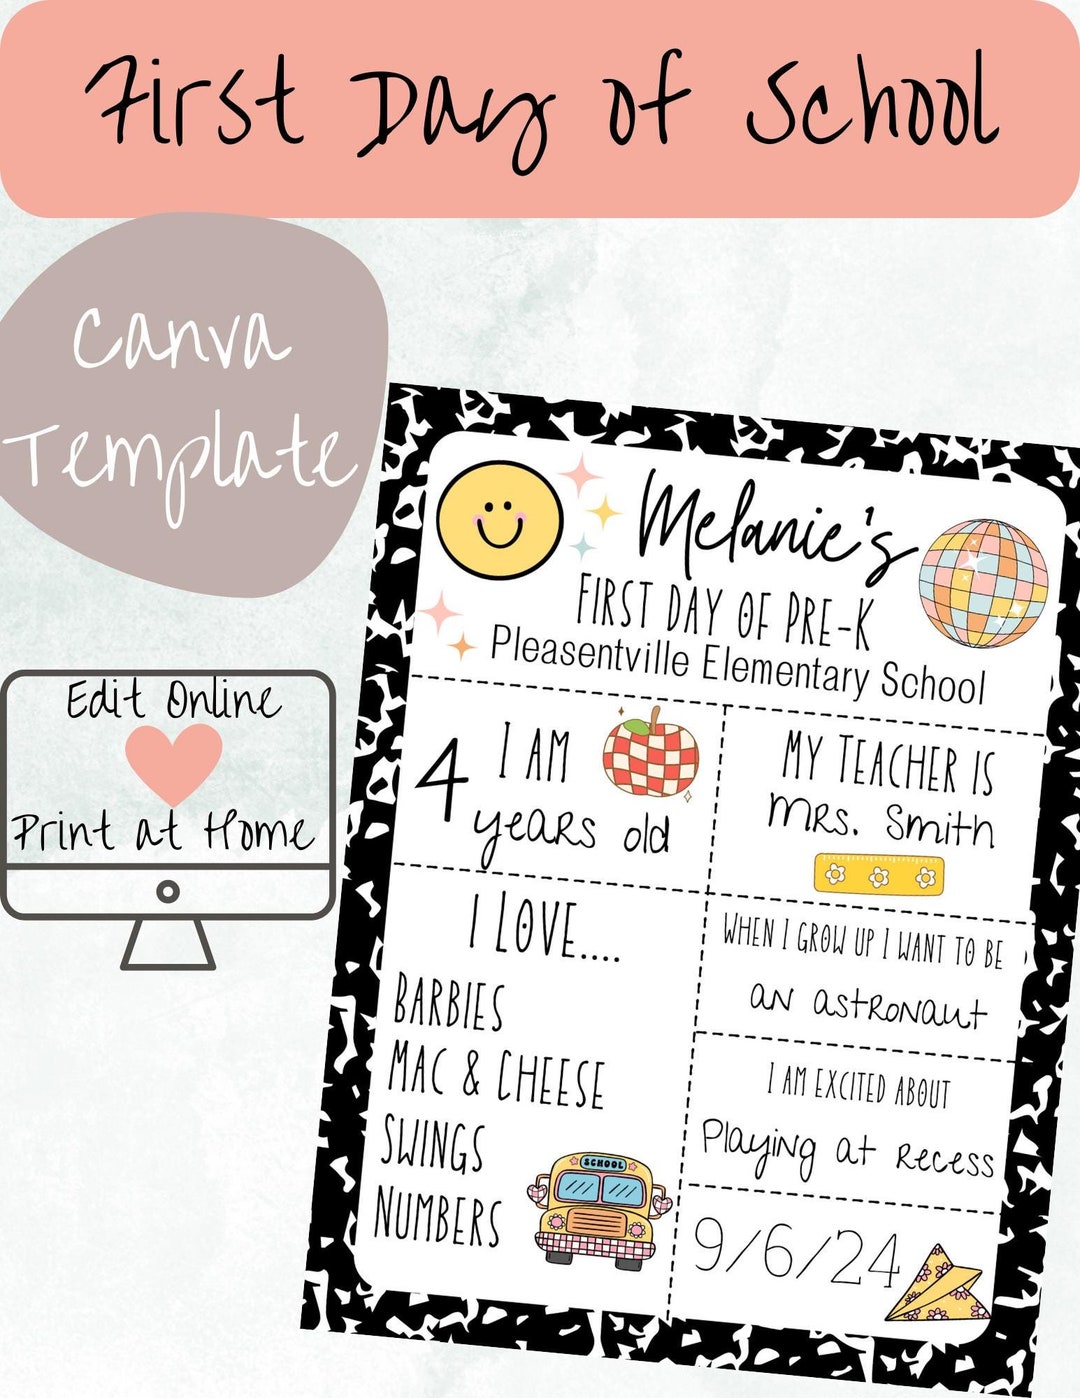 First Day of School
Canva
Template
Edit Online
Print at Home
Melanie's
FIRST DAY OF PRE-K
Pleasentville Elementary School
I AM
4
years old
MY TEACHER IS
MRS. Smith
I LOVE....
BARBIES
MAC & CHEESE
SWINGS
NUMBERS
SCHOOL
WHEN I GROW UP I WANT TO BE
an astronaut
I AM EXCITED ABOUT
Playing at recess
9/6/24